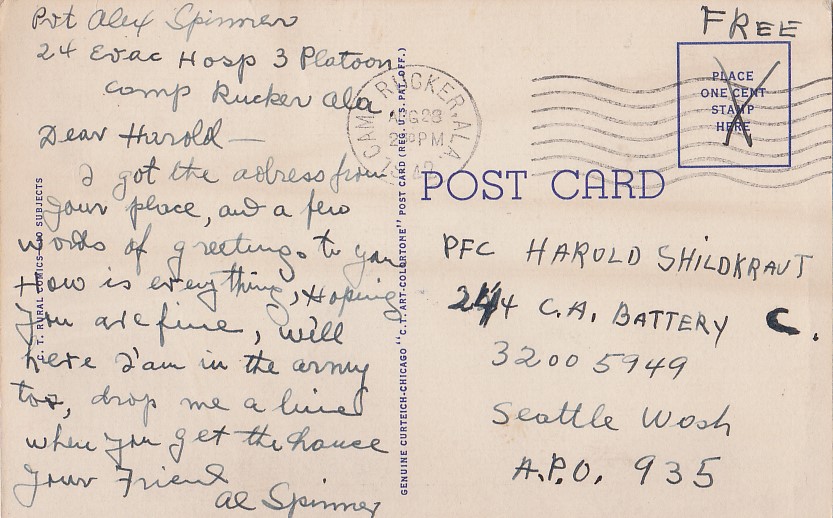 Pvt Alex Spinner
24 Evac Hosp 3 Platoon
Camp Rucker Ala.
Dear Harold—
I got the adress from
your place, and a few
words of greetings to you
How is everything, Hoping
you are fine, will
here I'am in the army
too, drop me a line
when you get the chance
Your Friend
Al Spinner
C.T. RURAL COMICS—10 SUBJECTS
GENUINE CURTEICH-CHICAGO "C.T. ART-COLORTONE" POST CARD (REG. U.S. PAT. OFF.)
CAMP RUCKER, ALA.
AUG 28
PM
42
FREE
PLACE
ONE CENT
STAMP
HERE
POST CARD
PFC HAROLD SHILDKRAUT
244 C.A. BATTERY C.
32005949
Seattle Wash
A.P.O. 935